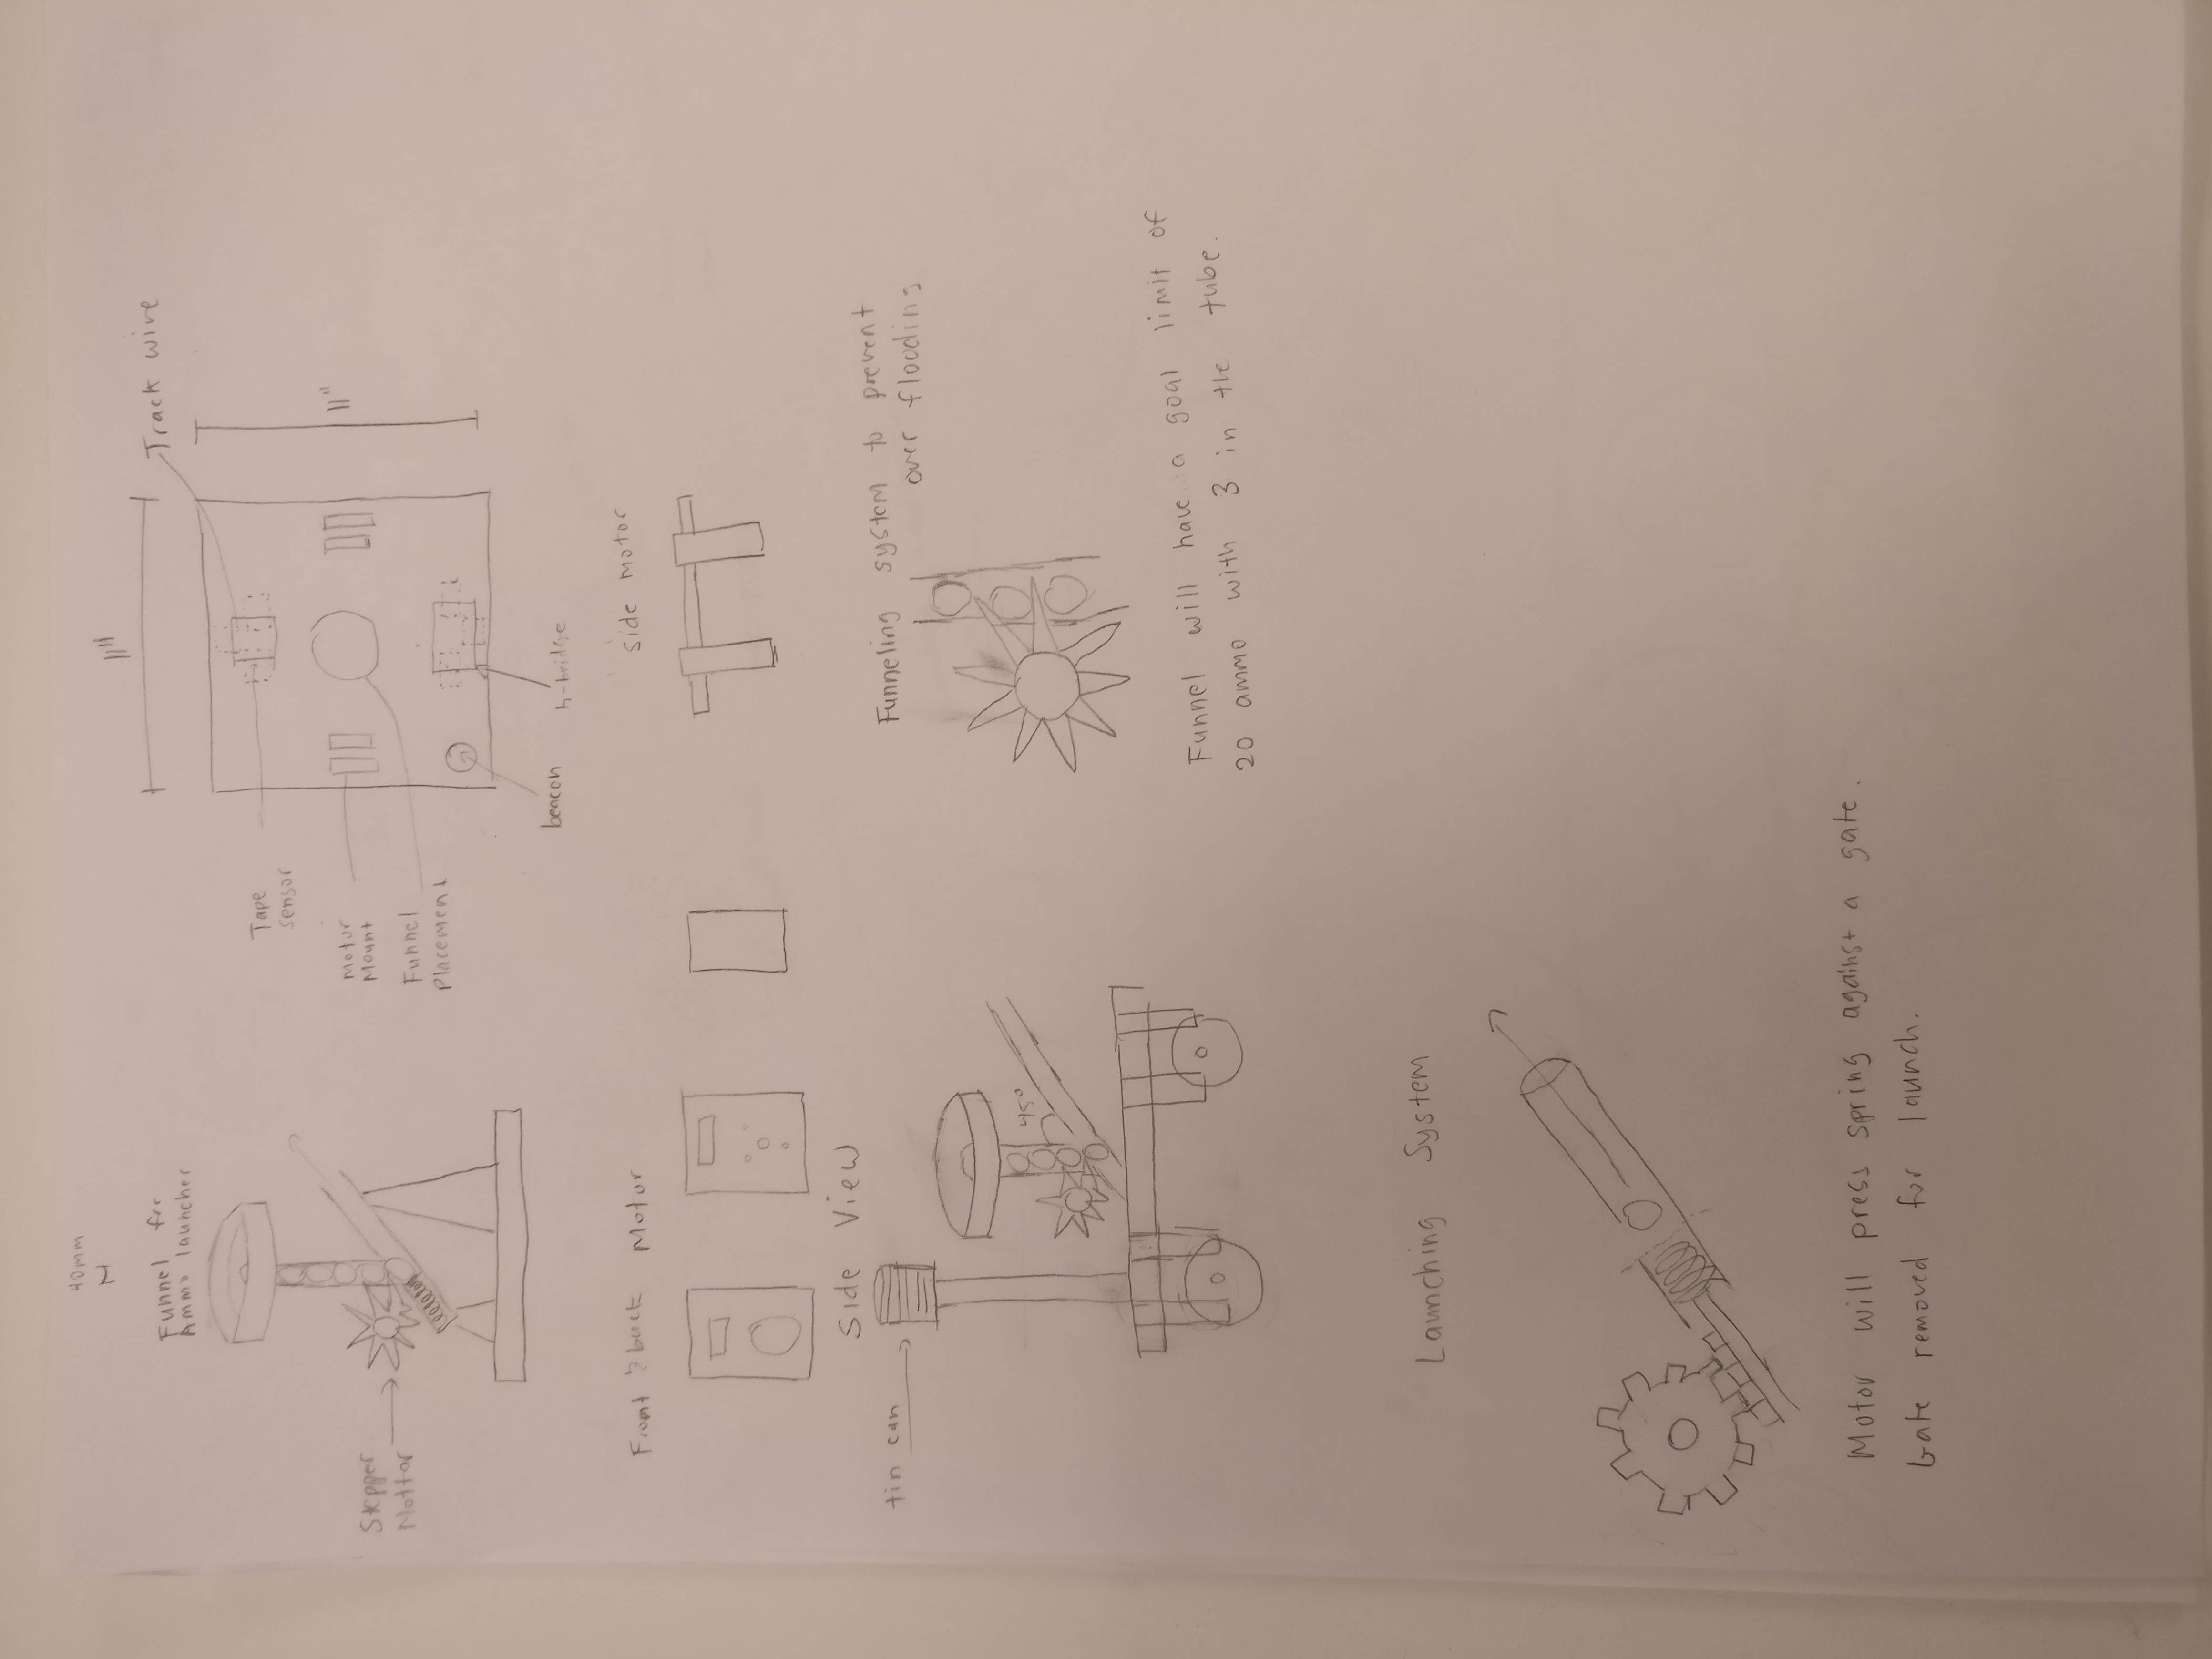 40mm
Funnel for
Ammo launcher
Stepper
Mottor
11"
Track wire
Tape
sensor
11"
motor
Mount
Funnel
Placement
beacon
h-bridge
Front & back Motor
side motor
Side View
tin can
45°
Funneling system to prevent
over flooding
Funnel will have a goal limit of
20 ammo with 3 in the tube.
Launching System
Motor will press spring against a gate.
Gate removed for launch.